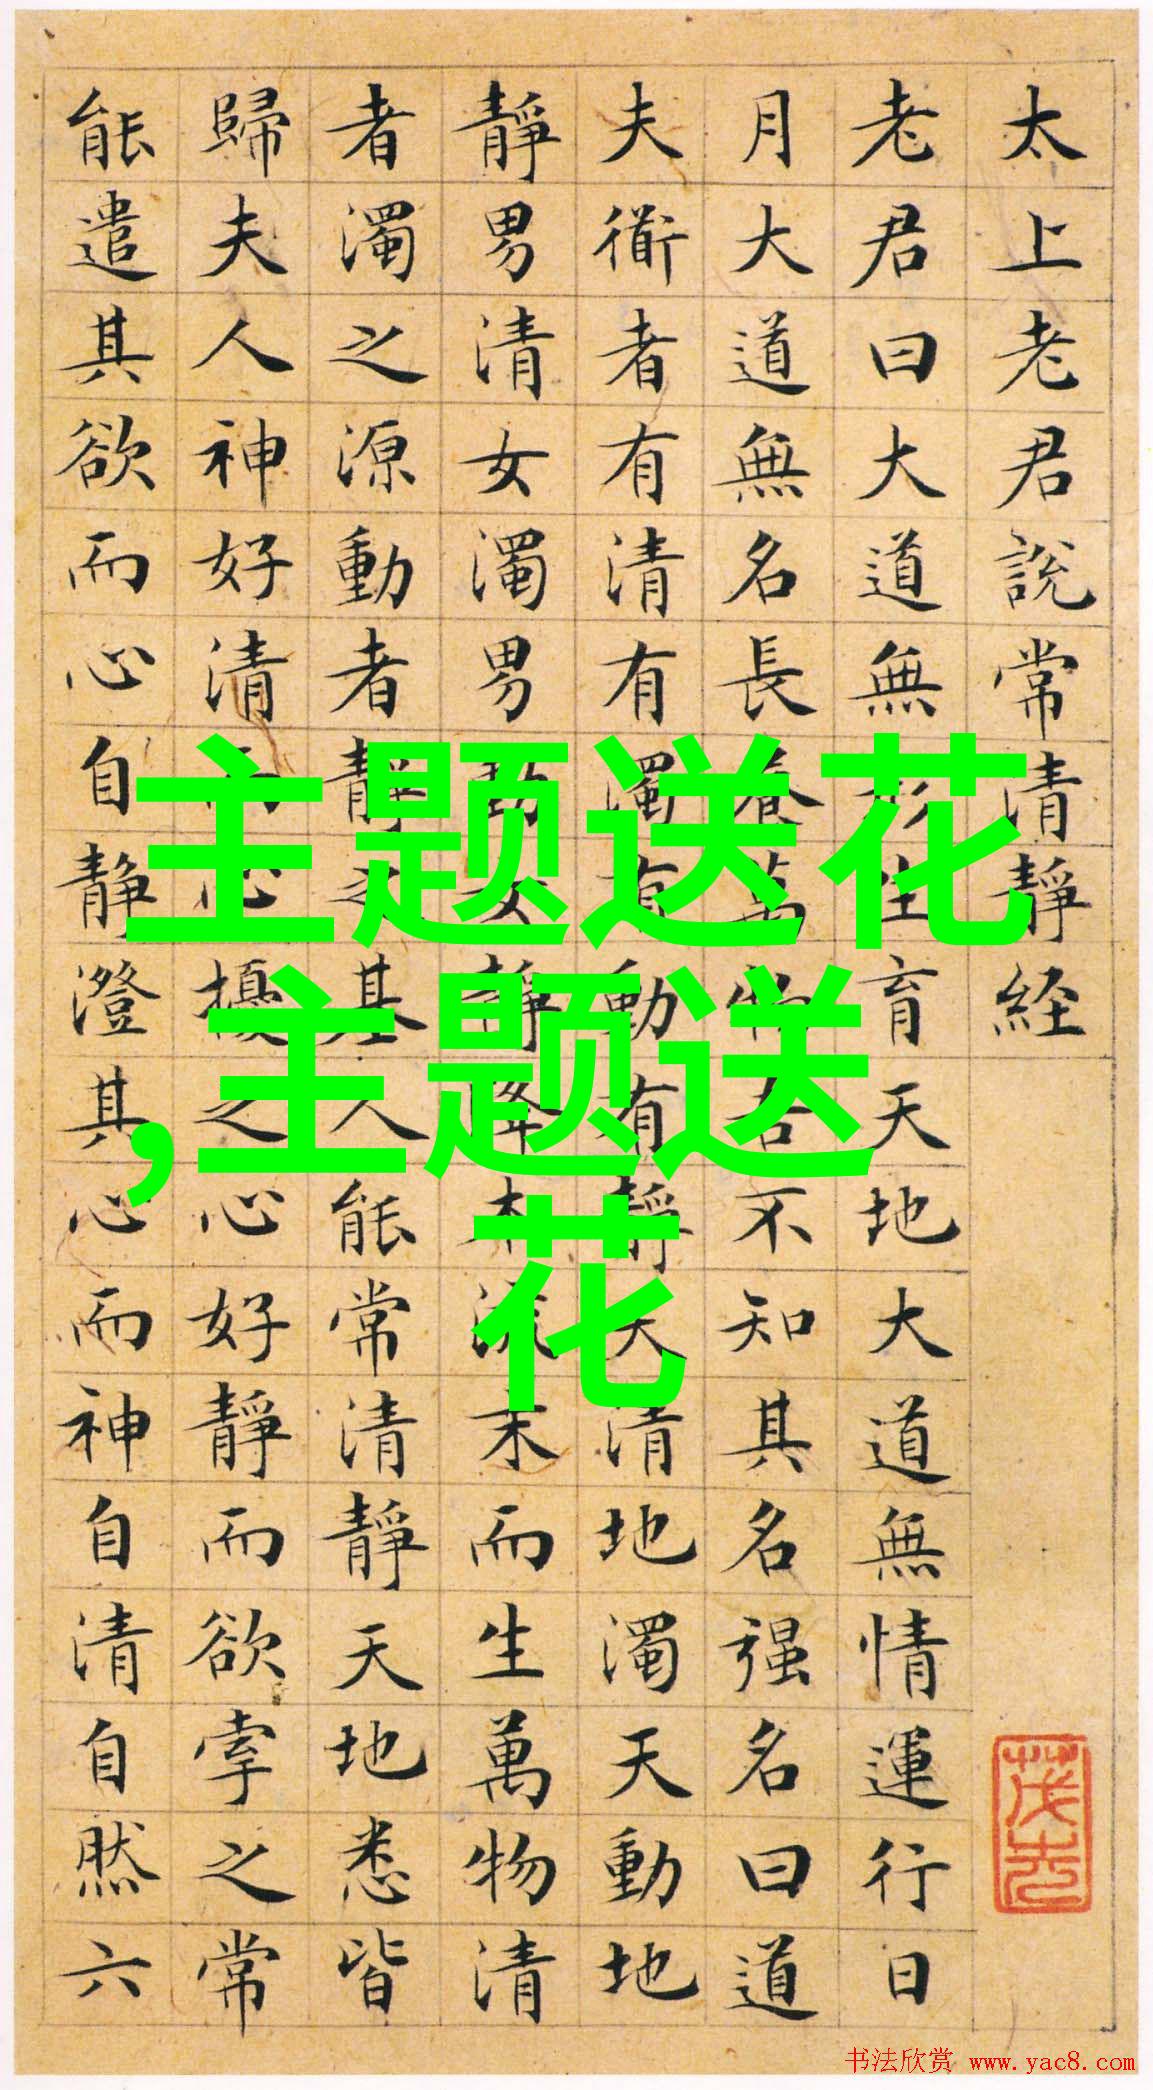 太上老君說常清靜経
老君曰大道無形生育天地大道無情運行日
月大道無名長養萬物吾不知其名强名曰道
夫衜者有清有濁有動有靜天清地濁天動地
靜男清女濁男動女靜降本流末而生萬物清
者濁之源動者靜之基人能常清靜天地悉皆
歸夫人神好清而心擾之心好靜而欲牽之常
能遣其欲而心自靜澄其心而神自清自然六
主题送花
,主题送
花
书法欣赏 www.yac8.com